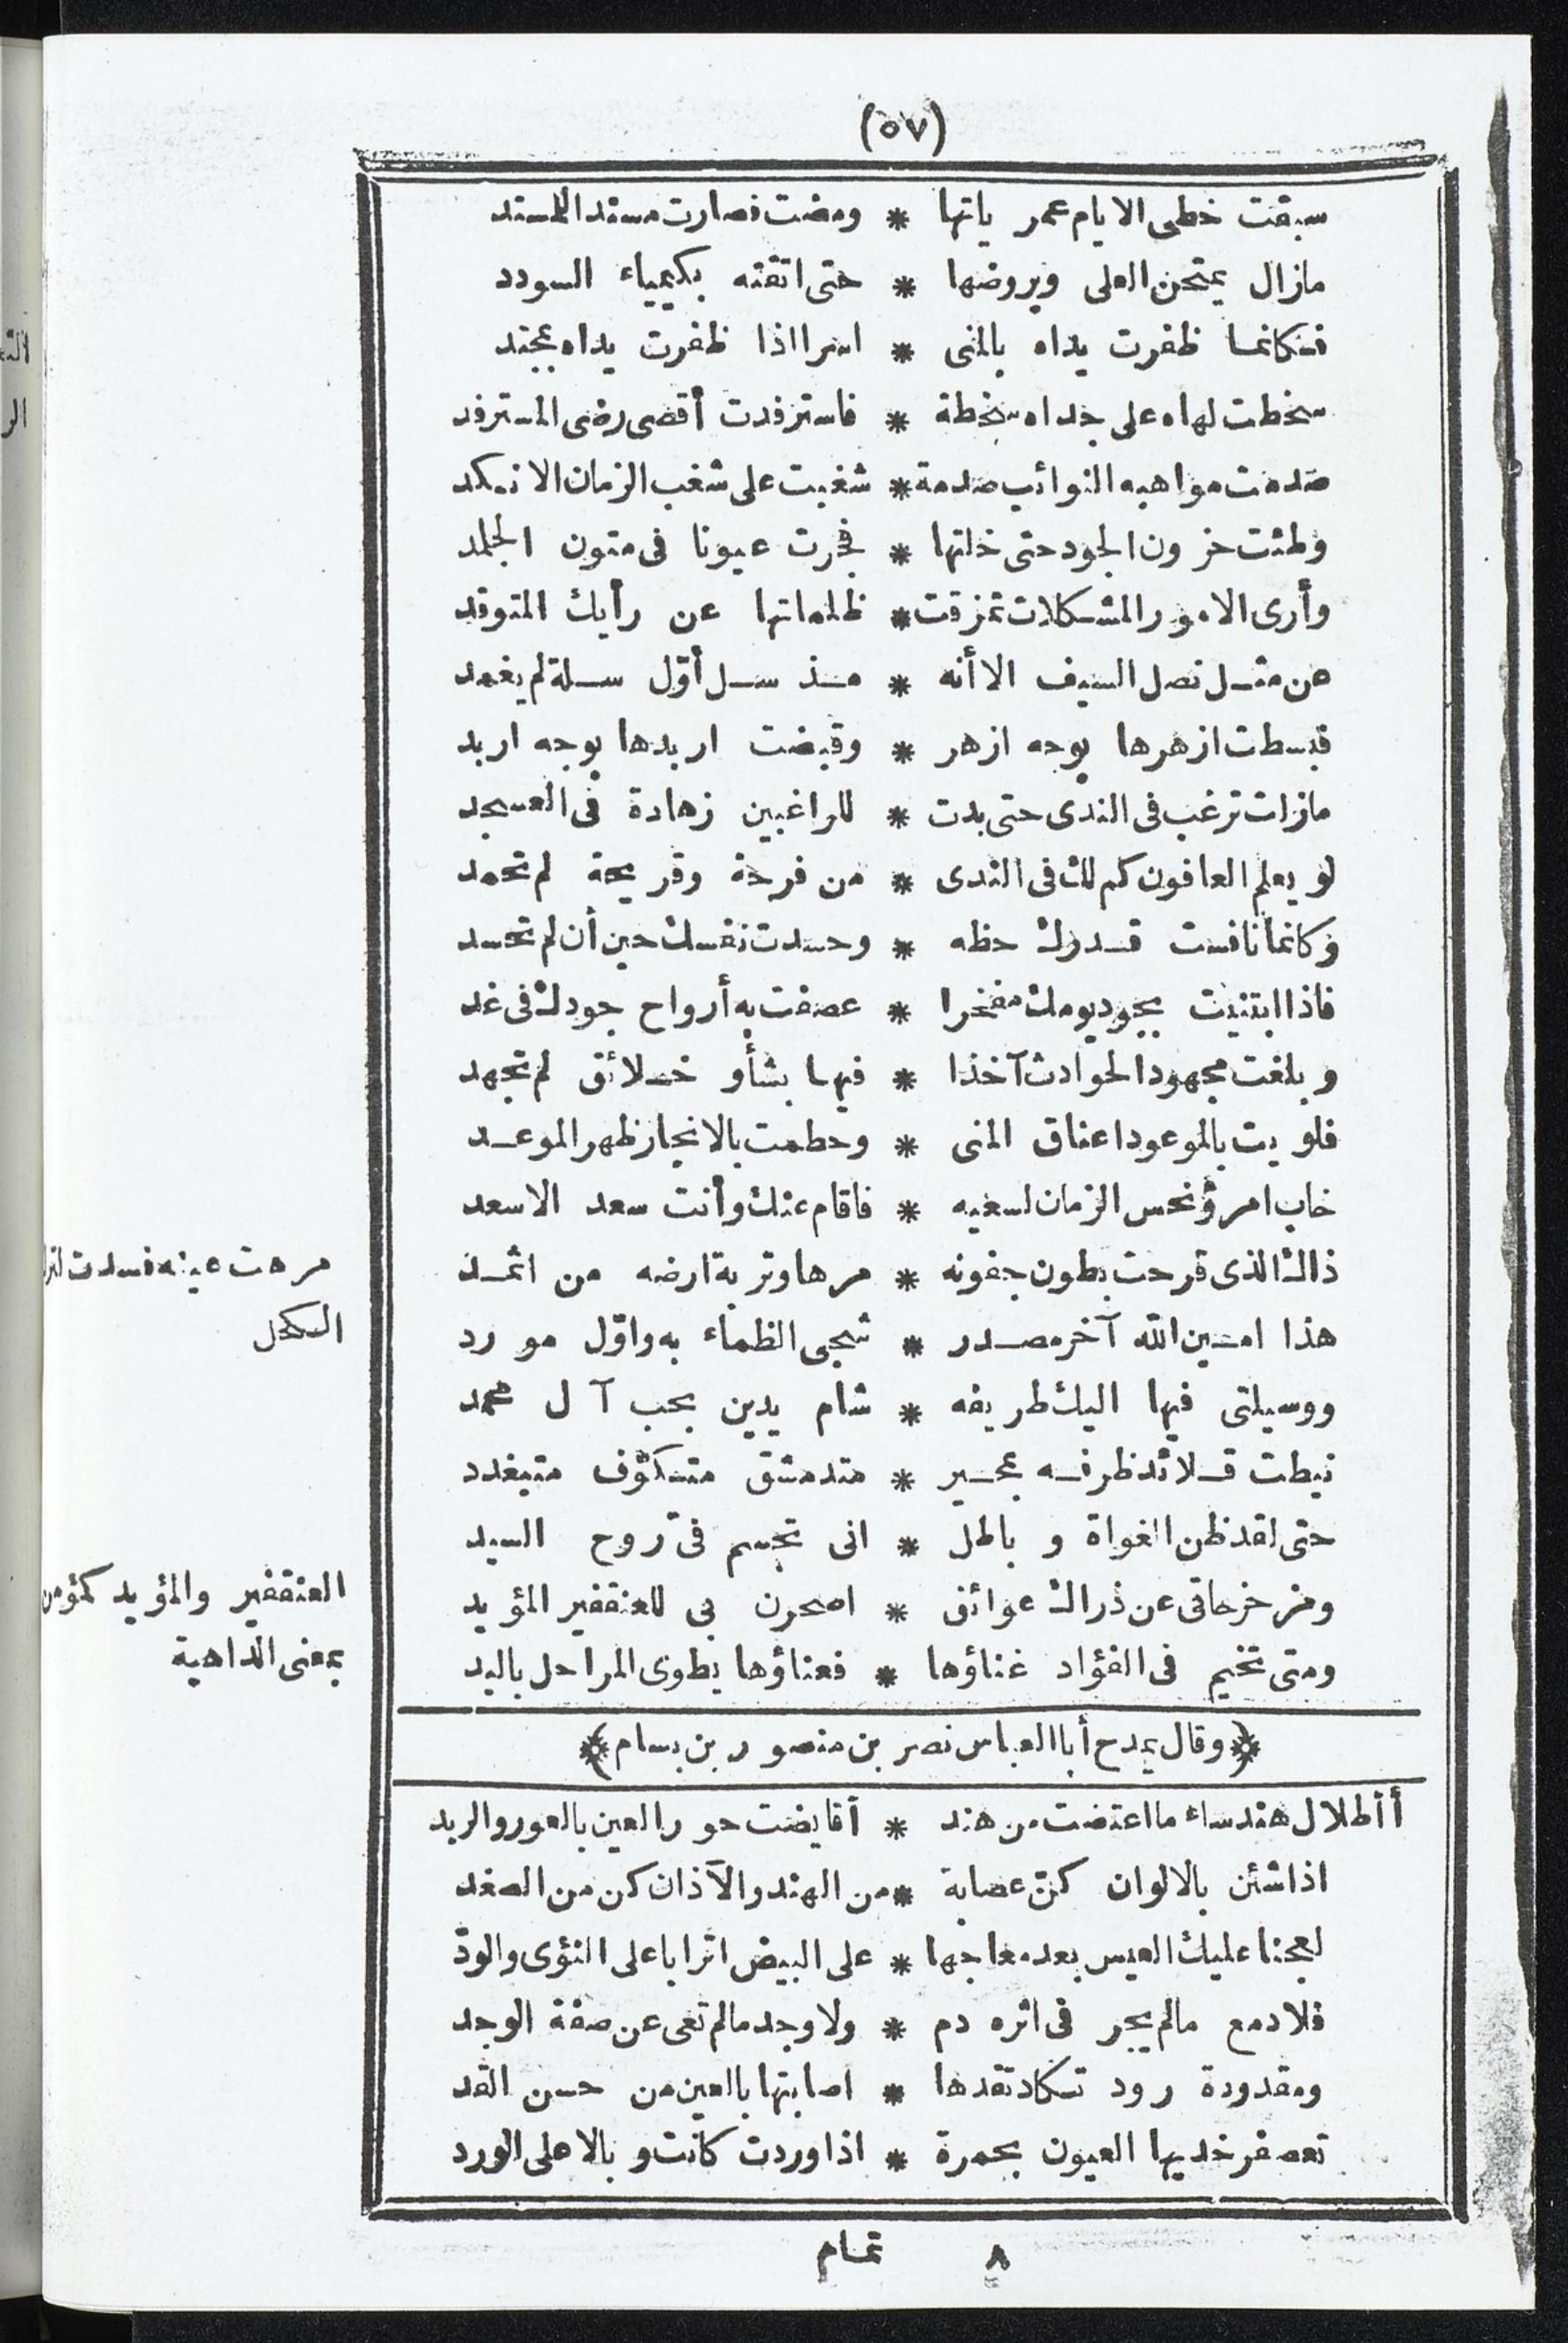 (٥٧)
سبقت خطى الايام عمر ياتها * ومضت فصارت مسندا للمسند
مازال يمتحن العلى ويروضها * حتى اتقته بكيمياء السودد
فكانما ظفرت يداه بالمنى * اسرا اذا ظفرت يداه بمجتد
سخطت لهاه على جداه سخطة * فاسترفدت أقصى رضى المسترفد
صدمت مواهبه النوائب صدمة * شغبت على شغب الزمان الانكد
وطئت حزون الجود حتى خلتها * فجرت عيونا فى متون الجلمد
وأرى الامور المشكلات تمزقت * ظلماتها عن رأيك المتوقد
عن مثل نصل السيف الا أنه * مذ سل أوّل سلة لم يغمد
فبسطت ازهرها بوجه ازهر * وقبضت اربدها بوجه اربد
مازلت ترغب فى الندى حتى بدت * للراغبين زهادة فى العسجد
لو يعلم العافون كم لك فى الندى * من فرحة وقريحة لم تحمد
وكانما نافست قدرك حظه * وحسدت نفسك حين أن لم تحسد
فاذا ابتنيت بجود يومك مفخرا * عصفت به أرواح جودك فى غد
وبلغت مجهود الحوادث آخذا * فيها بشأو خلائق لم تجهد
فلويت بالموعود اعناق المنى * وحطمت بالانجاز ظهر الموعد
خاب امرؤ نحس الزمان لسعيه * فاقام عنك وأنت سعد الاسعد
ذاك الذى قرحت بطون جفونه * مرها وتربة ارضه من اثمد
مرهت عينه فسدت لترك
الكحل
هذا امين الله آخر مصدر * شجى الظماء به واوّل مورد
ووسيلتى فيها اليك طريفه * شام يدين بحب آل محمد
نيطت قلائد ظرفه بمحبر * متدمشق متكوّف متبغدد
حتى لقد ظن الغواة و باطل * انى تجسم فىّ روح السيد
ومزحزحاتى عن ذراك عوائق * اصحرن بى للعنقفير المؤيد
العنقفير والمؤيد كمؤمن
بمعنى الداهية
ومتى تخيم فى الفؤاد غناؤها * فعناؤها يطوى المراحل باليد
﴿وقال يمدح أبا العباس نصر بن منصور بن بسام﴾
أأطلال هند ساء ما اعتضت من هند * أقايضت حور العين بالعور والربد
اذا شئن بالالوان كنّ عصابة * من الهند والآذان كن من الصغد
لعجنا عليك العيس بعد معاجها * على البيض اترابا على النؤى والودّ
فلا دمع مالم يجر فى اثره دم * ولا وجد مالم تعى عن صفة الوجد
ومقدودة رود تكاد تقدها * اصابتها بالعين من حسن القد
تعصفر خديها العيون بحمرة * اذا وردت كانت وبالا على الورد
٨ تمام